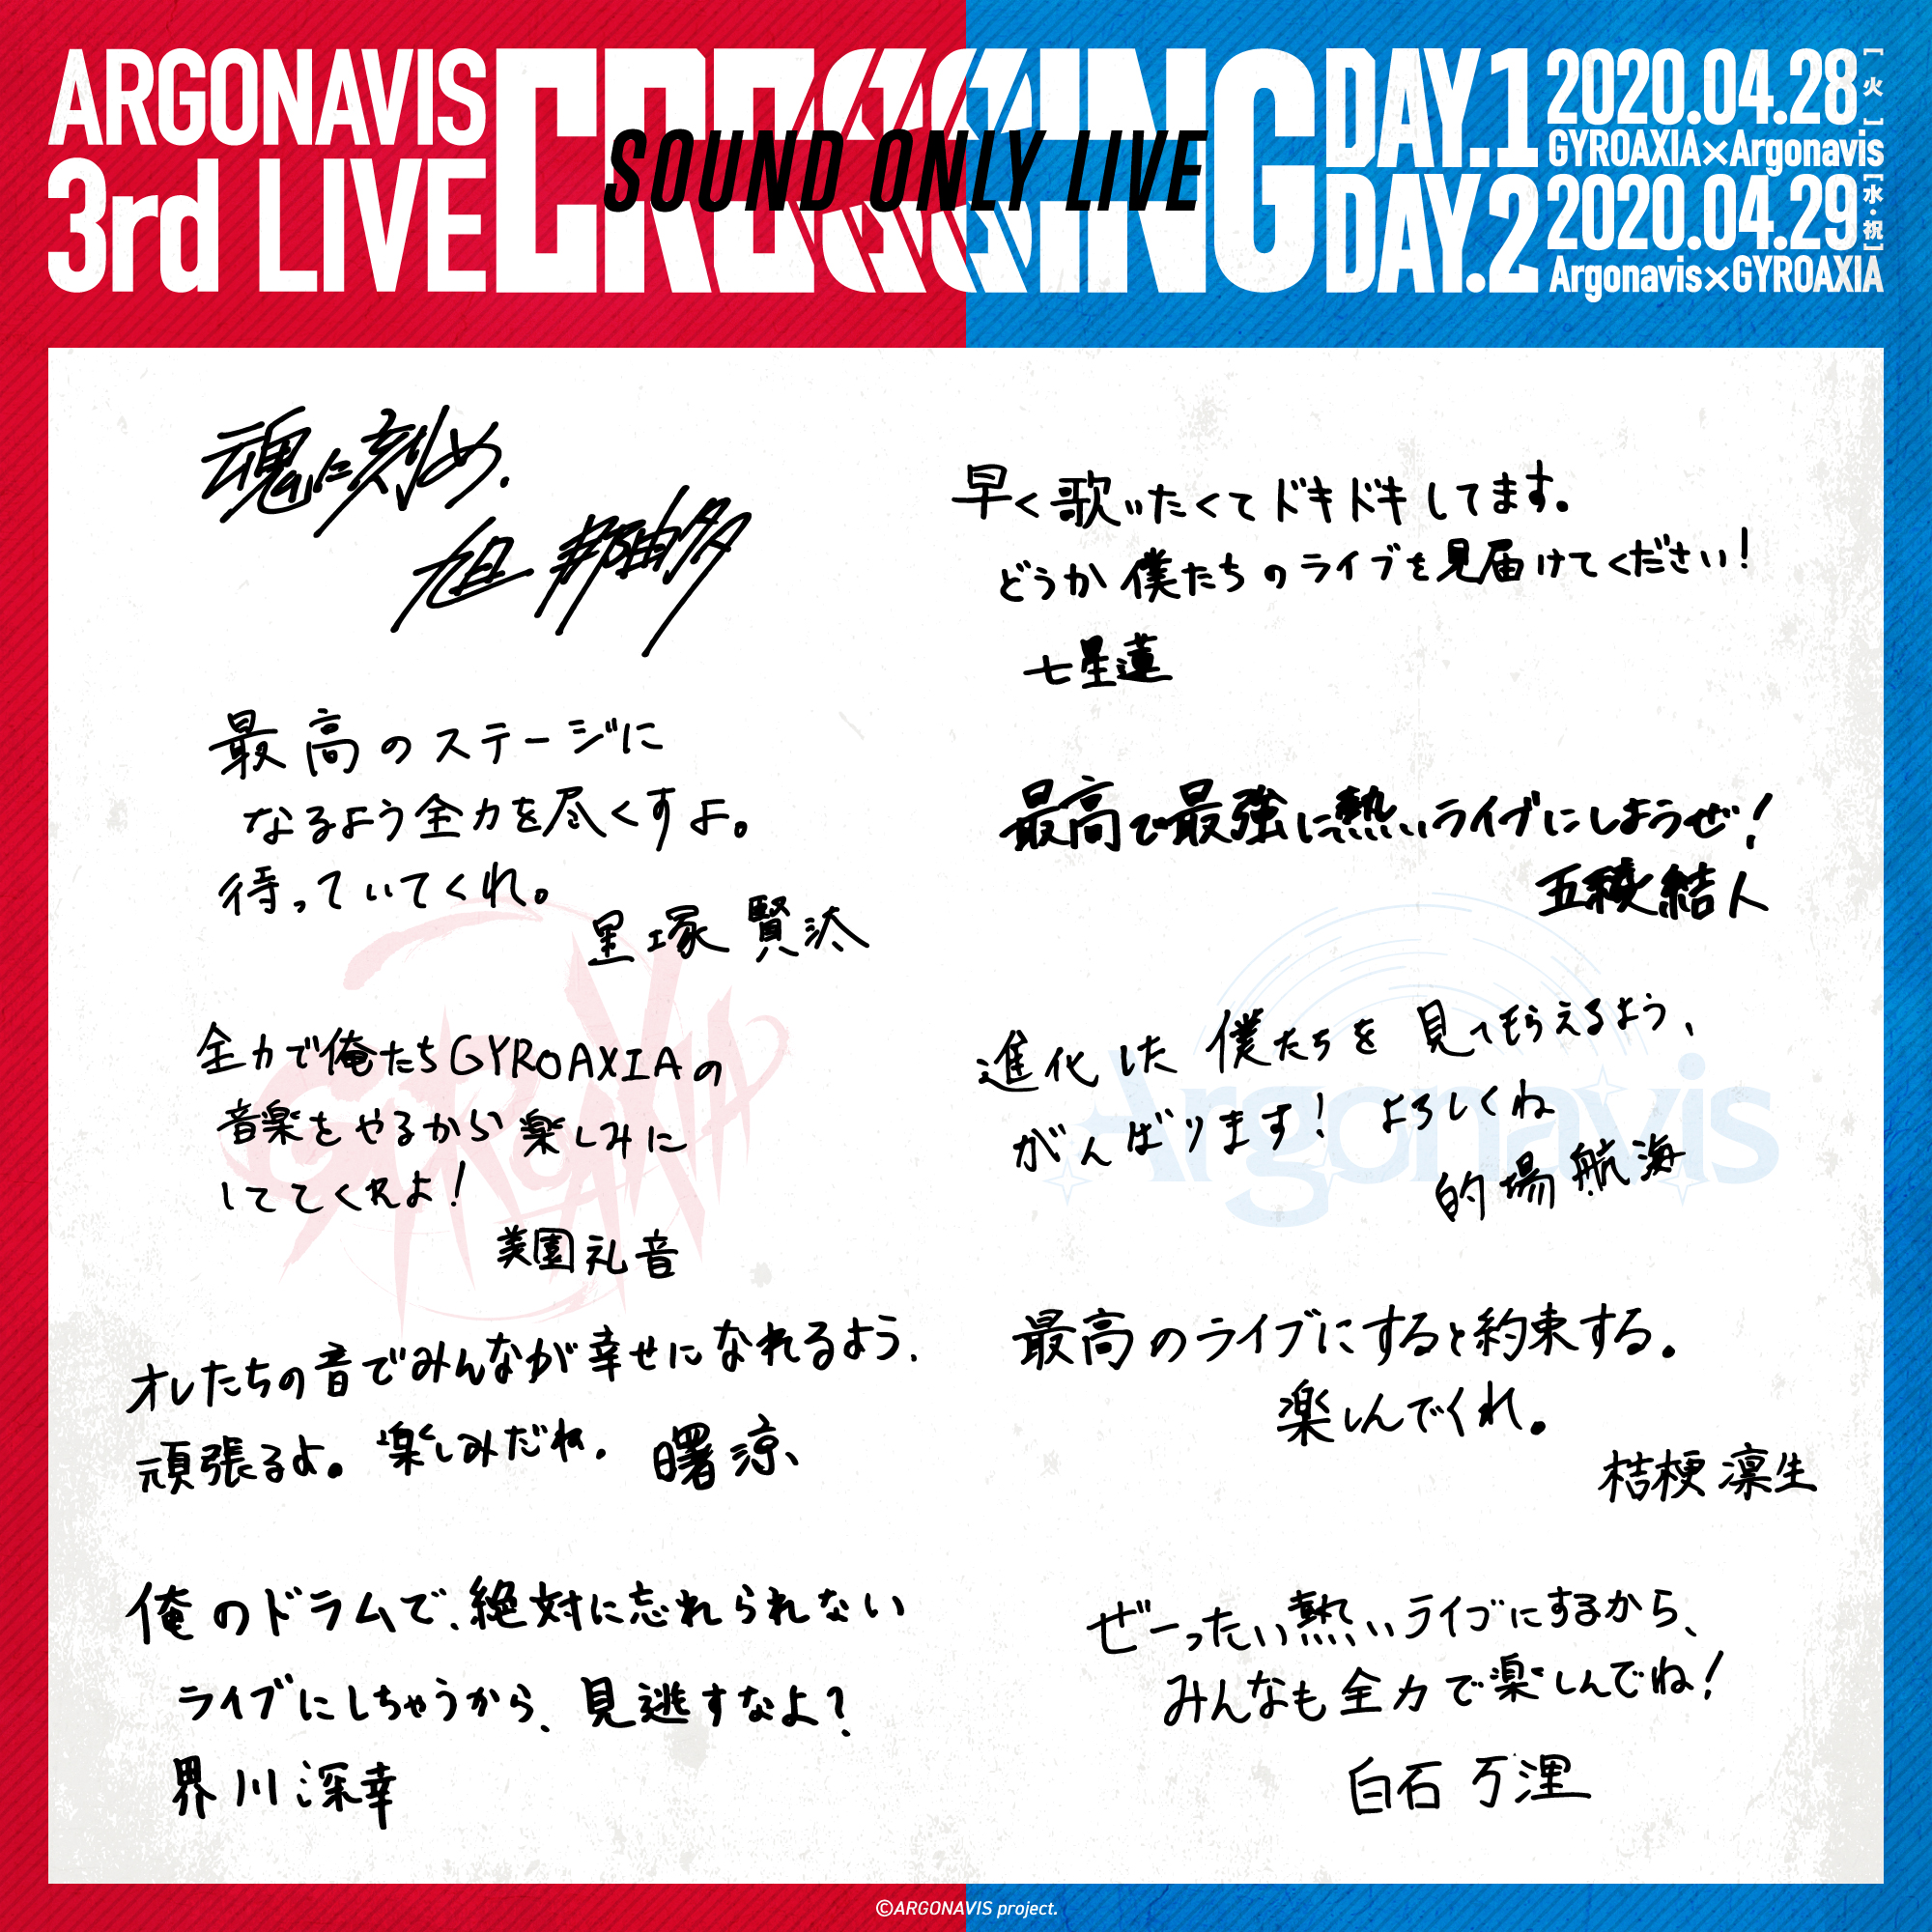 ARGONAVIS
3rd LIVE
CROSSING
SOUND ONLY LIVE
DAY.1 2020.04.28[火]
GYROAXIA×Argonavis
DAY.2 2020.04.29[水・祝]
Argonavis×GYROAXIA
魂に刻め.
旭 那由多
最高のステージに
なるよう全力を尽くすよ。
待っていてくれ。
里塚 賢汰
全力で俺たちGYROAXIAの
音楽をやるから楽しみに
しててくれよ!
美園礼音
オレたちの音でみんなが幸せになれるよう、
頑張るよ。楽しみだね. 曙 涼
俺のドラムで、絶対に忘れられない
ライブにしちゃうから、見逃すなよ?
界川 深幸
早く歌いたくてドキドキしてます。
どうか僕たちのライブを見届けてください!
七星蓮
最高で最強に熱いライブにしようぜ!
五稜結人
進化した僕たちを見てもらえるよう、
がんばります! よろしくね
的場航海
最高のライブにすると約束する。
楽しんでくれ。
桔梗 凛生
ぜーったい熱いライブにするから、
みんなも全力で楽しんでね!
白石 万浬
GYROAXIA
Argonavis
©ARGONAVIS project.